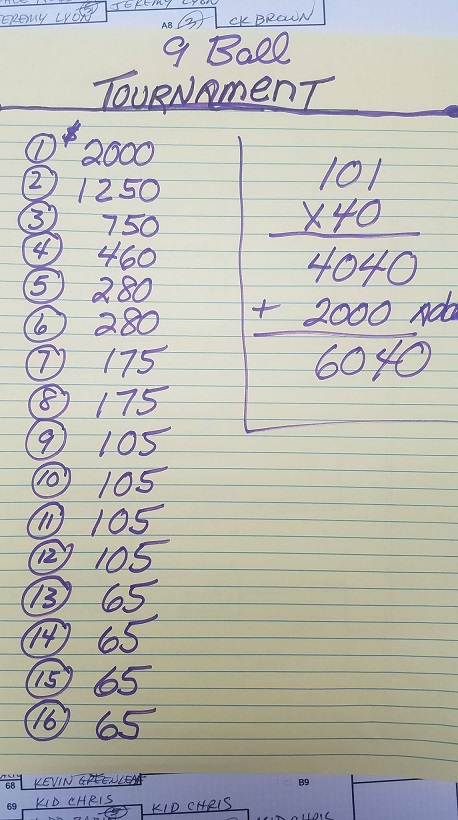 JEREMY LYON
JEREMY LYON
A8 3 CK BROWN
9 Ball
TOURNAMENT
1 $2000
2 1250
3 750
4 460
5 280
6 280
7 175
8 175
9 105
10 105
11 105
12 105
13 65
14 65
15 65
16 65
101
X40
4040
+ 2000
6040
68 KEVIN GREENLEAF
B9
69 KID CHRIS
KID CHRIS
KID CHRIS